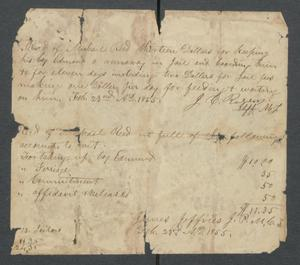 Recd of Michael Reed thirteen Dollars for Keeping
his boy Edmond a runaway in Jail and boarding him
for eleven days including two Dollars for Jail fees
making one Dollar per day for feeding & waiting
on him. Feb. 23rd AD. 1855.
J. C. Rogers
Recd of Michael Reed in full of the following
account to wit
For taking up boy Edmond $10.00
" Services 35
" Commitment 50
" Affidavit & Release 50
$11.35
James Jeffries J. P.
Feb. 23rd AD. 1855.
13.
11.35
24.35